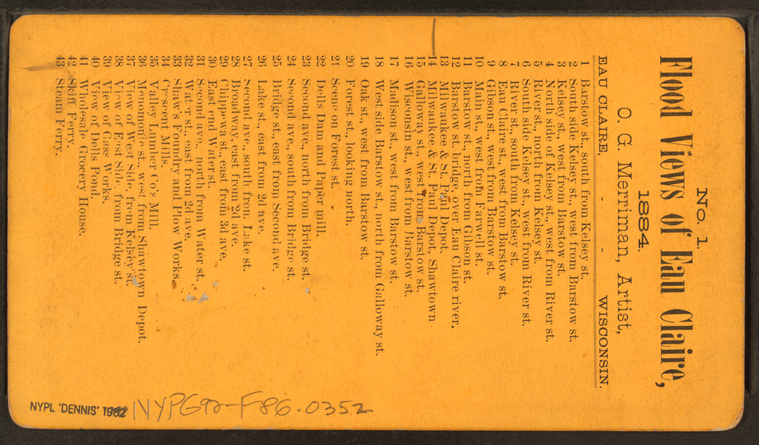 No. 1.
Flood Views of Eau Claire,
1884.
O. G. Merriman, Artist,
EAU CLAIRE. - - WISCONSIN.
1 Barstow st., south from Kelsey st.
2 South side Kelsey st., west from Barstow st.
3 Kelsey st., west from Barstow st.
4 North side of Kelsey st., west from River st.
5 River st., north from Kelsey st.
6 South side Kelsey st., west from River st.
7 River st., south from Kelsey st.
8 Eau Claire st., west from Barstow st.
9 Gibson st., west from Barstow st.
10 Main st., west from Farwell st.
11 Barstow st., north from Gibson st.
12 Barstow st. bridge, over Eau Claire river.
13 Milwaukee & St. Paul Depot.
14 Milwaukee & St. Paul Depot, Shawtown
15 Galloway st., west from Barstow st.
16 Wisconsin st., west from Barstow st.
17 Madison st., west from Barstow st.
18 West side Barstow st., north from Galloway st.
19 Oak st., west from Barstow st.
20 Forest st. looking north.
21 Scene on Forest st.
22 Dells Dam and Paper mill.
23 Second ave., north from Bridge st.
24 Second ave., south from Bridge st.
25 Bridge st., east from Second ave.
26 Lake st., east from 2d ave.
27 Second ave., south from Lake st.
28 Broadway, east from 2d ave.
29 Chippewa st., east from 3d ave.
30 East end Water st.
31 Second ave., north from Water st.
32 Water st., east from 2d ave.
33 Shaw's Foundry and Plow Works.
34 Crescent Mills.
35 Valley Lumber Co's Mill.
36 Menomonie st., west from Shawtown Depot.
37 View of West Side, from Kelsey st.
38 View of East Side, from Bridge st.
39 View of Gas Works.
40 View of Dells Pond.
41 Wholesale Grocery House.
42 Skiff Ferry.
43 Steam Ferry.
NYPL 'DENNIS' 1982
NYPG92-F86.0352